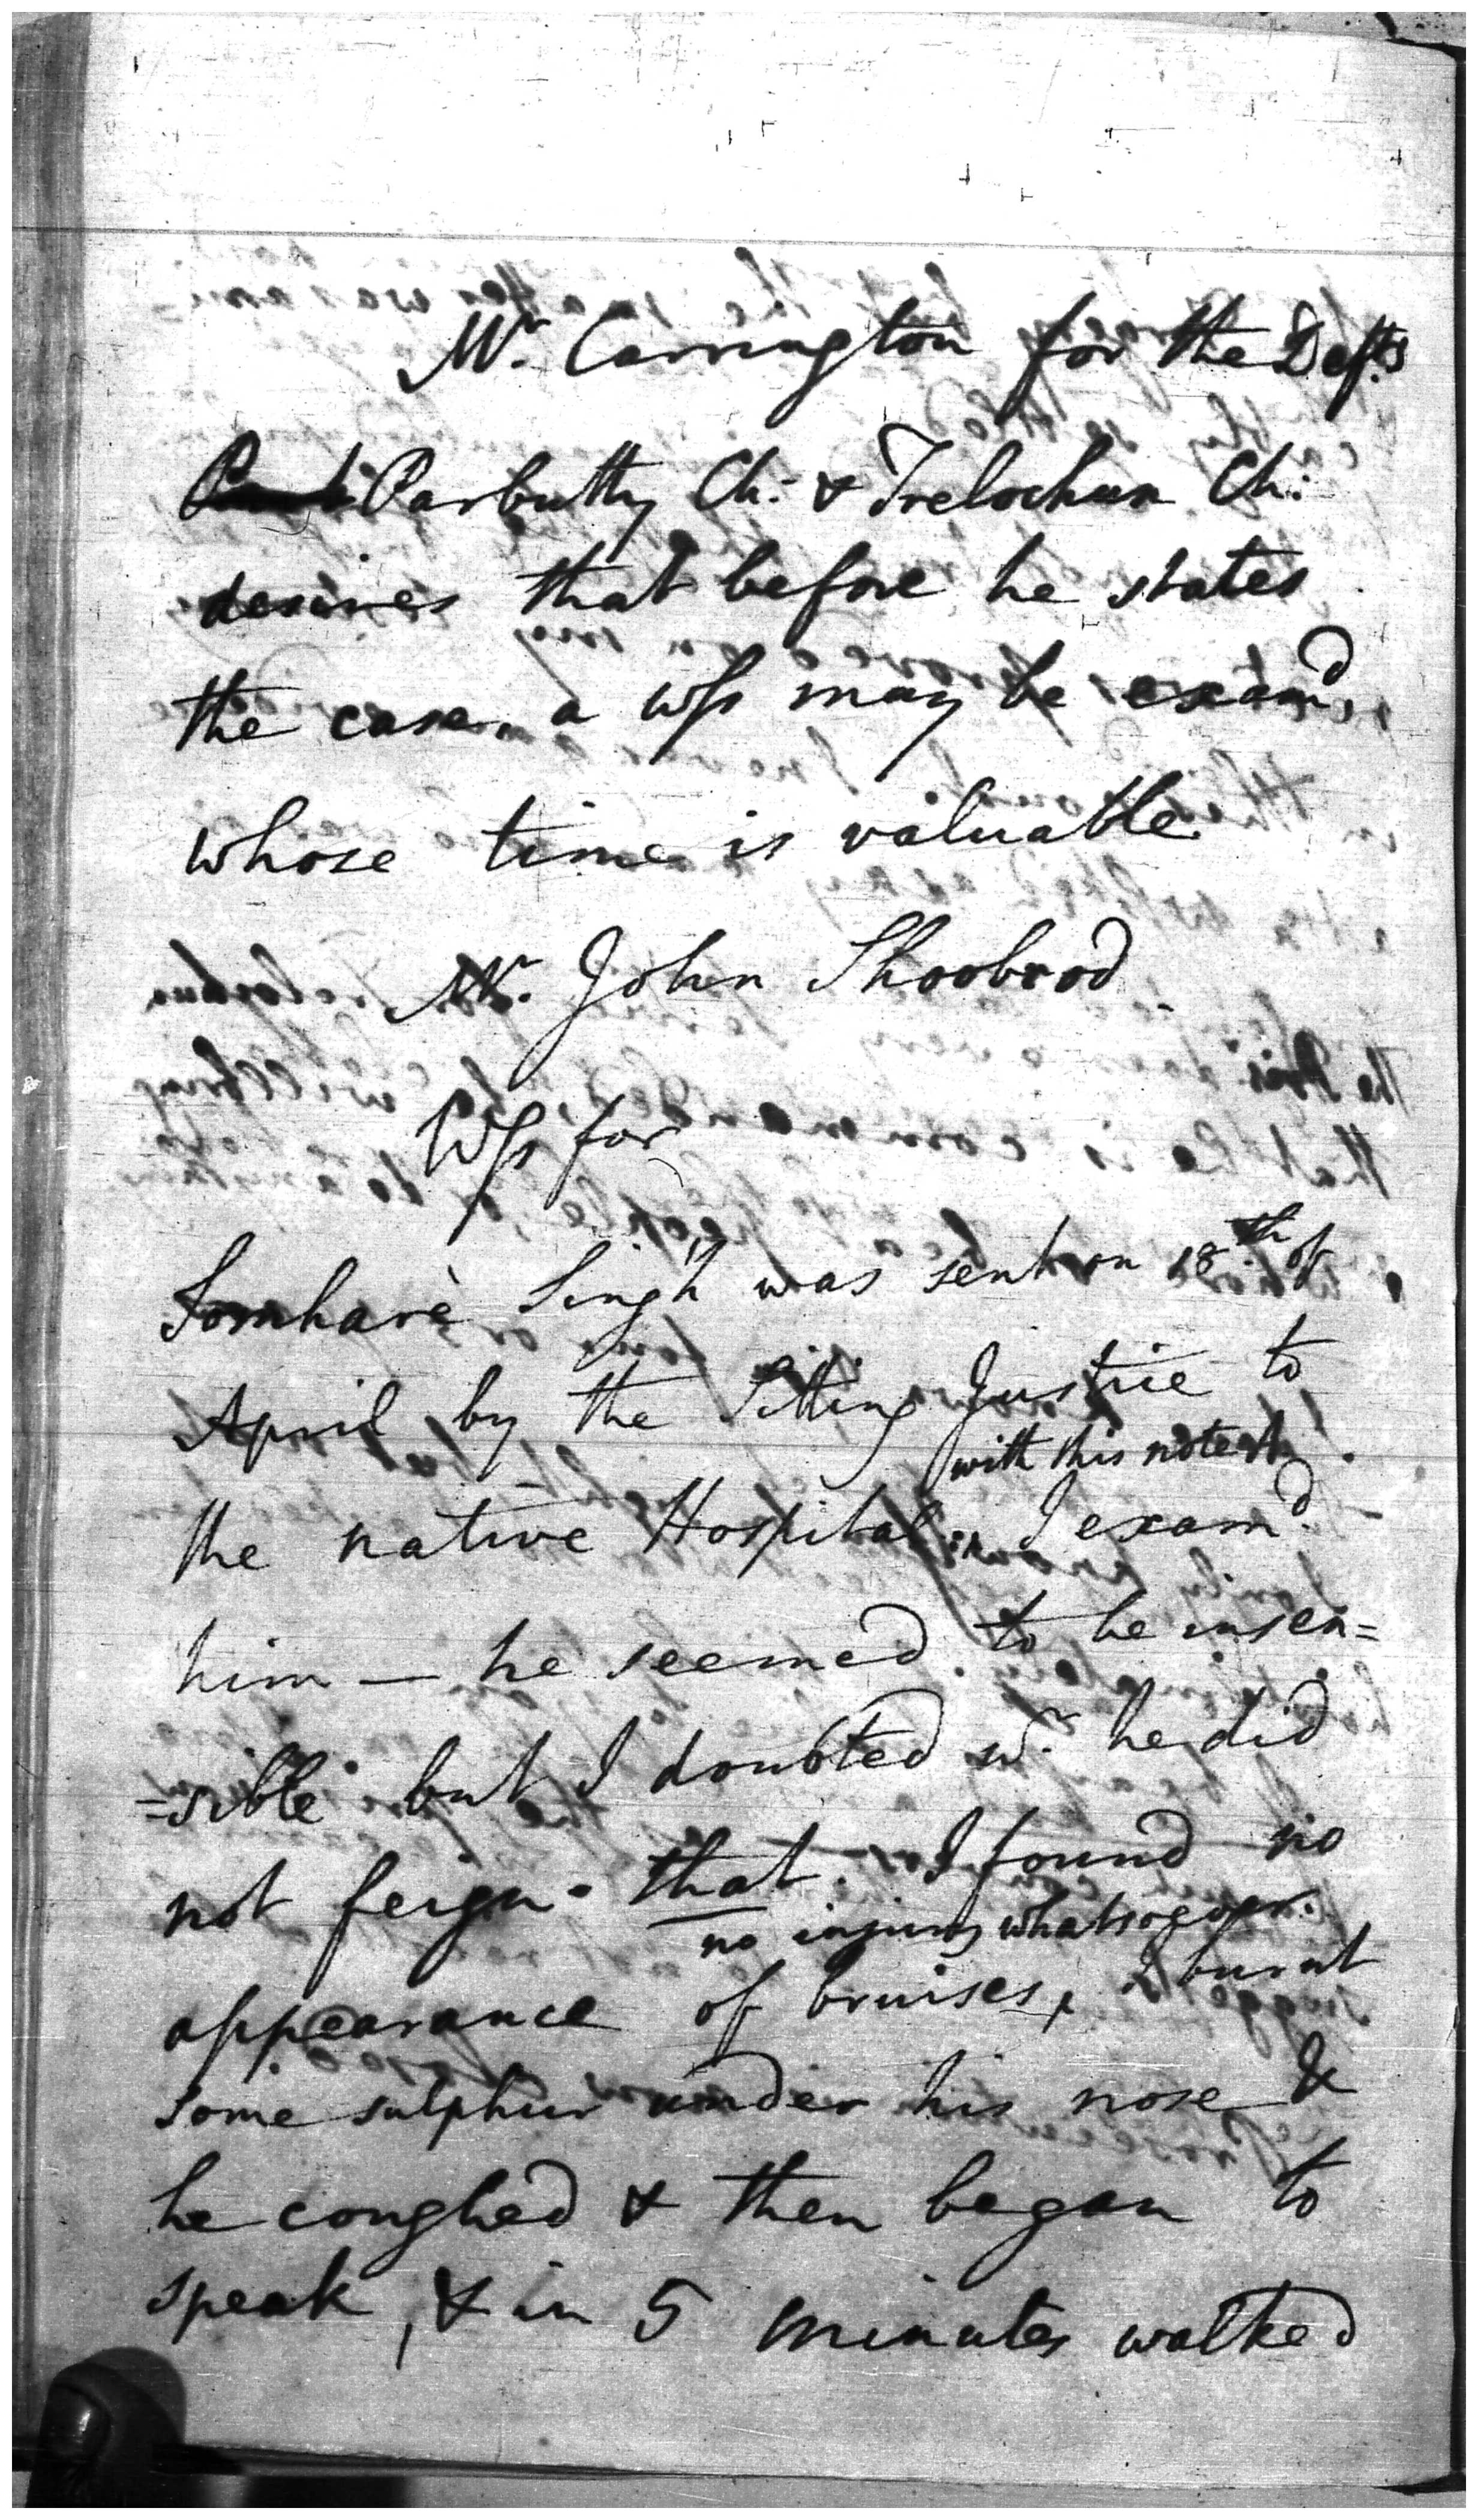 Mr. Carrington for the Defts
Parbutty Ch: & Trelochun Ch:
desires that before he states
the case, a Wss may be examd,
whose time is valuable.
Mr. John Shoobrod
Wss for
Somharè Singh was sent on 18th of
April by the Sitting Justice to
with this note
the native Hospital I examd.
him — he seemed to be insen=
=sible but I doubted wr. he did
not feign that. I found no
no injury whatsoever.
appearance of bruises, I burnt
some sulphur under his nose &
he coughed & then began to
speak, & in 5 minutes walked